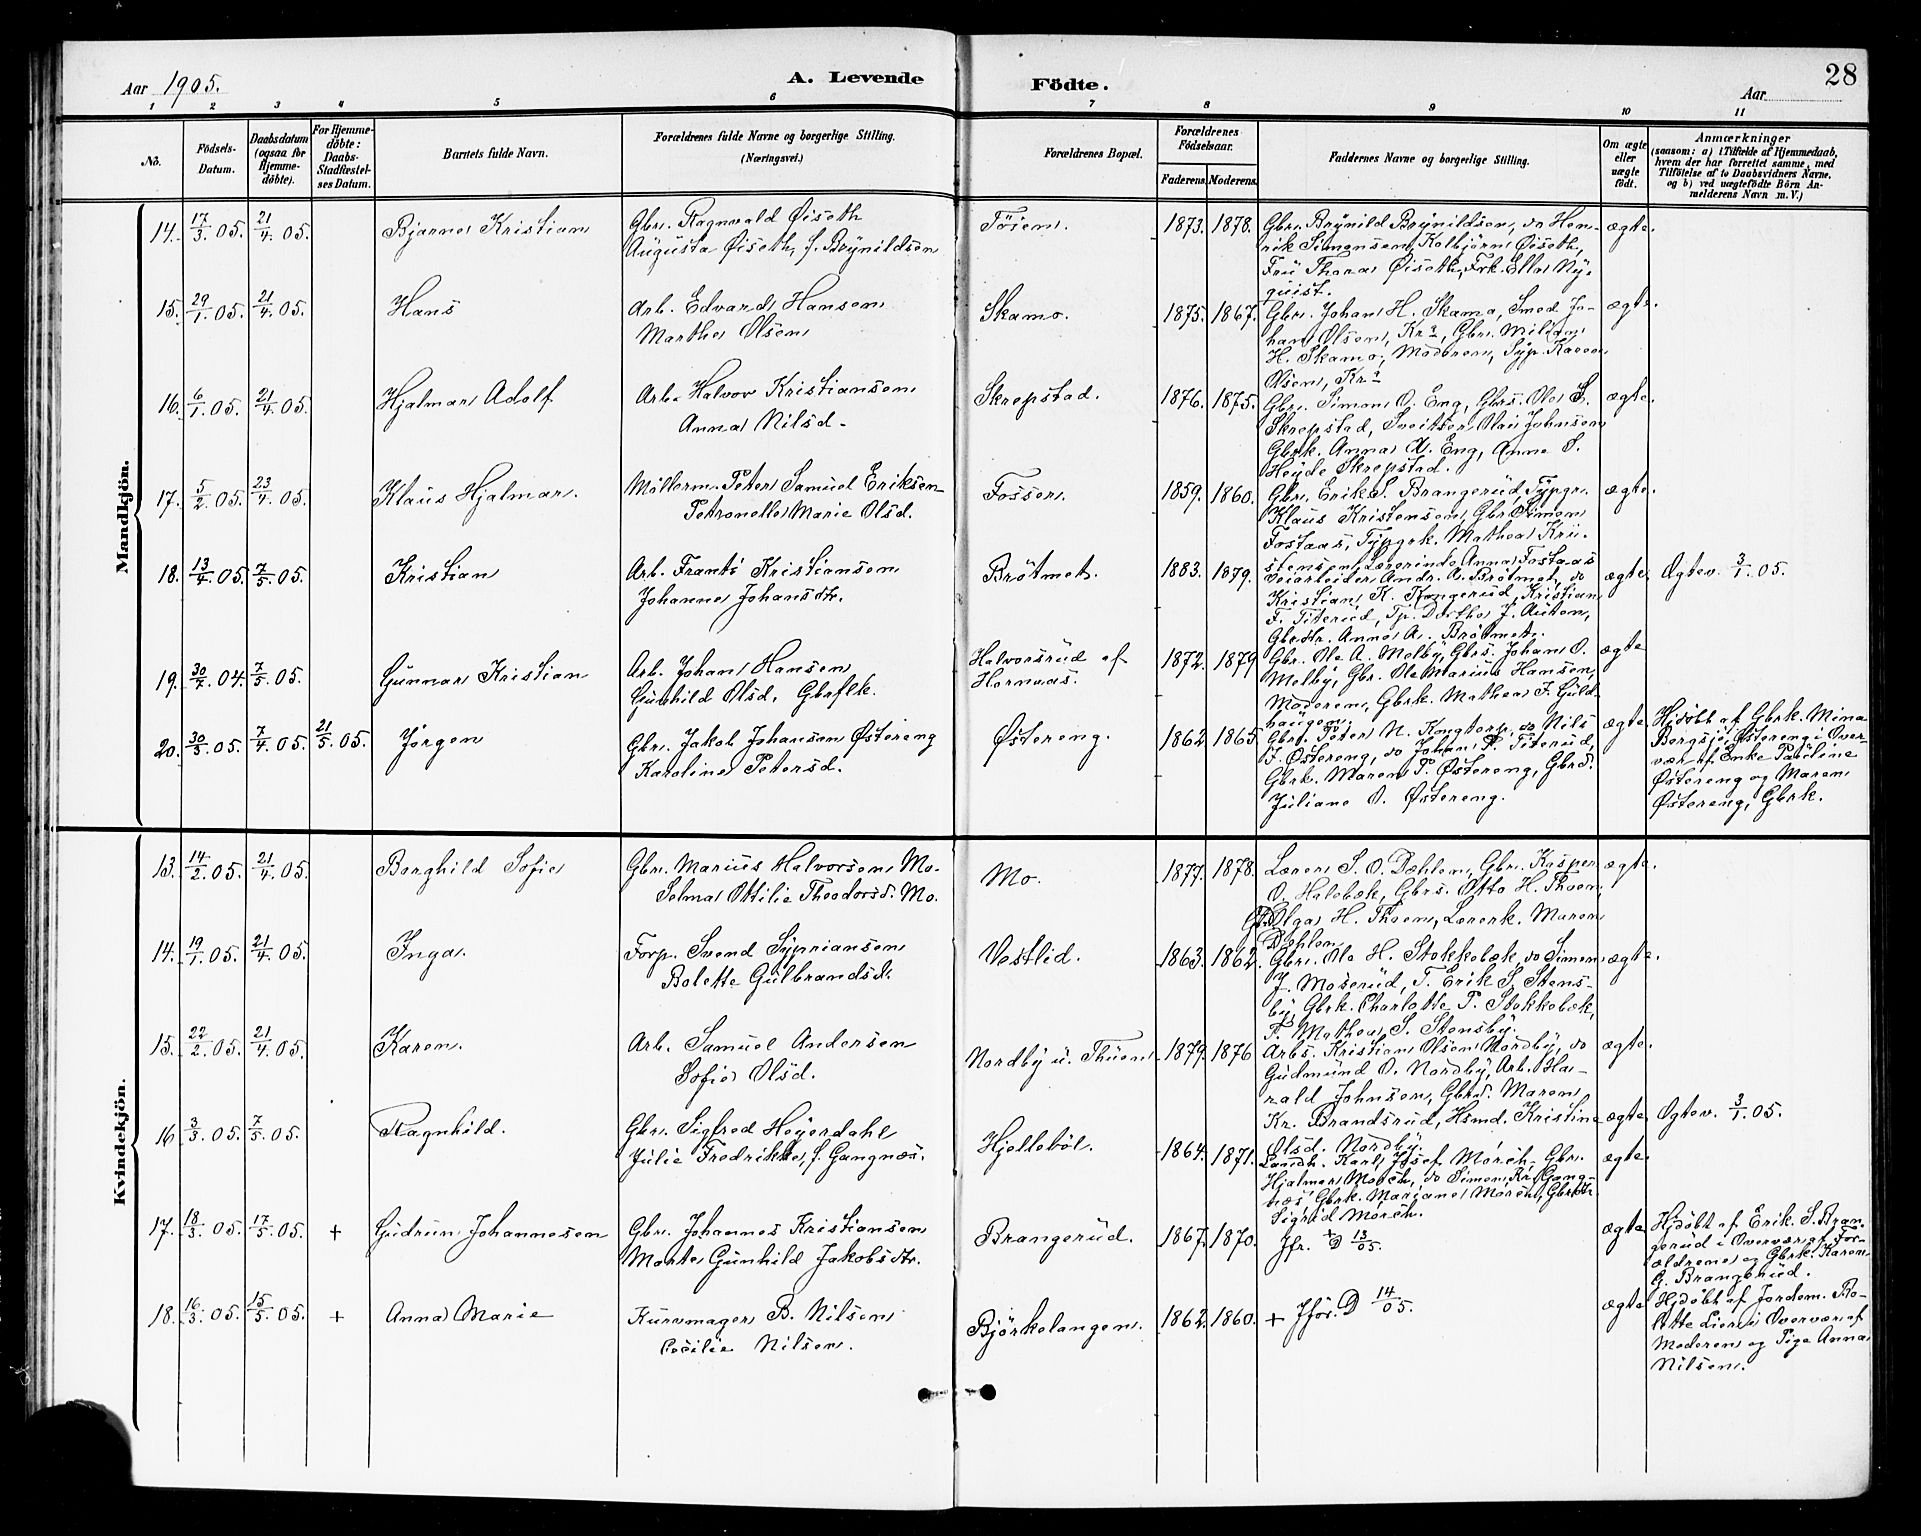 Aar 1905.
A. Levende
Födte.
28
Aar
1 2 3 4 5 6 7 8 9 10 11
No.
Födsels-
Datum.
Daabsdatum
(ogsaa for
Hjemme-
döbte).
For Hjemme-
döbte:
Daabs-
Stadfæstel-
ses Datum.
Barnets fulde Navn.
Forældrenes fulde Navne og borgerlige Stilling.
(Næringsvei.)
Forældrenes Bopæl.
Forældrenes
Födselsaar.
Faderens.
Moderens.
Faddernes Navne og borgerlige Stilling.
Om ægte
eller
uægte
födt.
Anmærkninger
(saasom: a) i Tilfælde af Hjemmedaab,
hvem der har forrettet samme, med
Tilföielse af to Daabsvidners Navne,
og b) ved uægtefödte Börn An-
melderens Navn m.V.)
Mandkjön.
14. 17/3 05. 21/4 05. Bjarne Kristian
Gbr. Ragnvald Øiseth
Augusta Øiseth, f. Brynildsen
Töien. 1873. 1878.
Gbr. Brynild Brynildsen, do Hen-
rik Simensen, Kolbjörn Øiseth,
Fru Thora Øiseth, Frk. Ella Ny-
quist.
ægte.
15. 29/1 05. 21/4 05. Hans
Arb. Edvard Hansen
Marthe Olsen
Skamo. 1875. 1867.
Gbr. Johan H. Skamo, Smed Jo-
han Olsen, Kra, Gbr. Mildan
H. Skamo, Moderen, Syp. Karen
Olsen, Kra
ægte.
16. 6/1 05. 21/4 05. Hjalmar Adolf
Arb. Halvor Kristiansen
Anna Nilsd.
Skrepstad. 1876. 1875.
Gbr. Simon O. Eng, Gbrs. Ole S.
Skrepstad, Sveitser Olai Johnsen
Gbrk. Anna A. Eng, Anne S.
Høyde Skrepstad.
ægte.
17. 5/2 05. 23/4 05. Klaus Hjalmar.
Möllerm. Peter Samuel Eriksen
Petronelle Marie Olsd.
Fossen. 1859. 1860.
Gbr. Erik S. Brangerud, Typgr.
Klaus Kristensen, Gbr. Simon
Fostaas, Typgrk. Mathea Kri-
stensen, Lærerinde Anna Fostaas
ægte.
18. 13/4 05. 7/5 05. Kristian
Arb. Frants Kristiansen
Johanne Johansdtr.
Brötmet. 1883. 1879.
Veiarbeider Andr. A. Brötmet, do
Kristian K. Kongerud, Kristian
F. Titerud, Tp. Dorthe J. Auten,
Gbrdtr. Anne A. Brötmet.
ægte. Ægtev. 3/1 05.
19. 30/7 04. 7/5 05. Gunnar Kristian
Arb. Johan Hansen
Gunhild Olsd, Gbrflk.
Halvorsrud af
Hornaas. 1872. 1879
Gbr. Ole A. Melby, Gbrs. Johan O.
Melby, Gbr. Ole Marius Hansen,
Moderen, Gbrk. Mathea F. Guld-
haugen.
ægte
20. 30/3 05. 7/4 05. 21/5 05. Jörgen
Gbr. Jakob Johansen Østereng
Karoline Petersd.
Østereng. 1862. 1865.
Gbrf. Peter N. Kongtorp, do Nils
J. Østereng, do Johan P. Titerud,
Gbrk. Maren P. Østereng, Gbrd.
Juliane O. Østereng.
ægte.
Hjdöbt af Gbrk. Mina
Bergsjö Østereng i Over-
vær af Enke Pauline
Østereng og Maren
Østereng, Gbrk.
Kvindekjön.
13. 14/2 05. 21/4 05. Borghild Sofie
Gbr. Marius Halvorsen Mo.
Selma Ottilie Theodorsd. Mo.
Mo. 1877. 1878.
Lærer S. O. Dæhlen, Gbr. Kasper
O. Halebæk, Gbrs. Otto H. Thoen,
Olga H. Thoen, Lærerk. Maren
Dæhlen
ægte.
14. 19/1 05. 21/4 05. Inga.
Forp. Svend Sypriansen
Bolette Gulbrandsd.
Vestlid. 1863. 1862.
Gbr. Ole H. Stokkebæk, do Simen
J. Moserud, T. Erik S. Stens-
by, Gbrk. Charlotte P. Stokkebæk,
T. Mathea S. Stensby.
ægte.
15. 22/2 05. 21/4 05. Karen.
Arb. Samuel Andersen
Sofie Olsd.
Nordby u. Thuen. 1879. 1876
Arbs. Kristian Olsen Nordby, do
Gudmund O. Nordby, Arb. Ha-
rald Johnsen, Gbrd. Maren
Kr. Brandsrud, Hsmd. Kristine
Olsd. Nordby.
ægte.
ægte. Ægtev. 3/1 05.
16 3/3 05. 7/5 05. Ragnhild.
Gbr. Sigfred Heyerdahl
Julie Fredrikke, f. Gangnæs.
Hjelleböl. 1864. 1871.
Landh. Karl Josef Mörch, Gbr.
Hjalmar Mörch, do Simen Kr. Gang-
næs, Gbrk. Mariane Mörch, Gbrdtr.
Sigrid Mörch.
ægte.
17. 18/3 05. 17/5 05. + Gudrun Johannesen
Gbr. Johannes Kristiansen
Marte Gunhild Jakobsdtr.
Brangerud. 1867. 1870.
Jfr. + D 13/05.
ægte
Hjdöbt af Erik S. Bran-
gerud i Overvær af For-
ældrene og Gbrk. Karen
G. Brangerud.
18. 16/3 05. 15/5 05. + Anna Marie
Kurvmager B. Nilsen
Cecilie Nilsen.
Björkelangen. 1862. 1860.
+ Jför. D 14/05.
ægte
Hjdöbt af Jordem. Bo-
lette Lier i Overvær af
Moderen og Pige Anna
Nilsen.